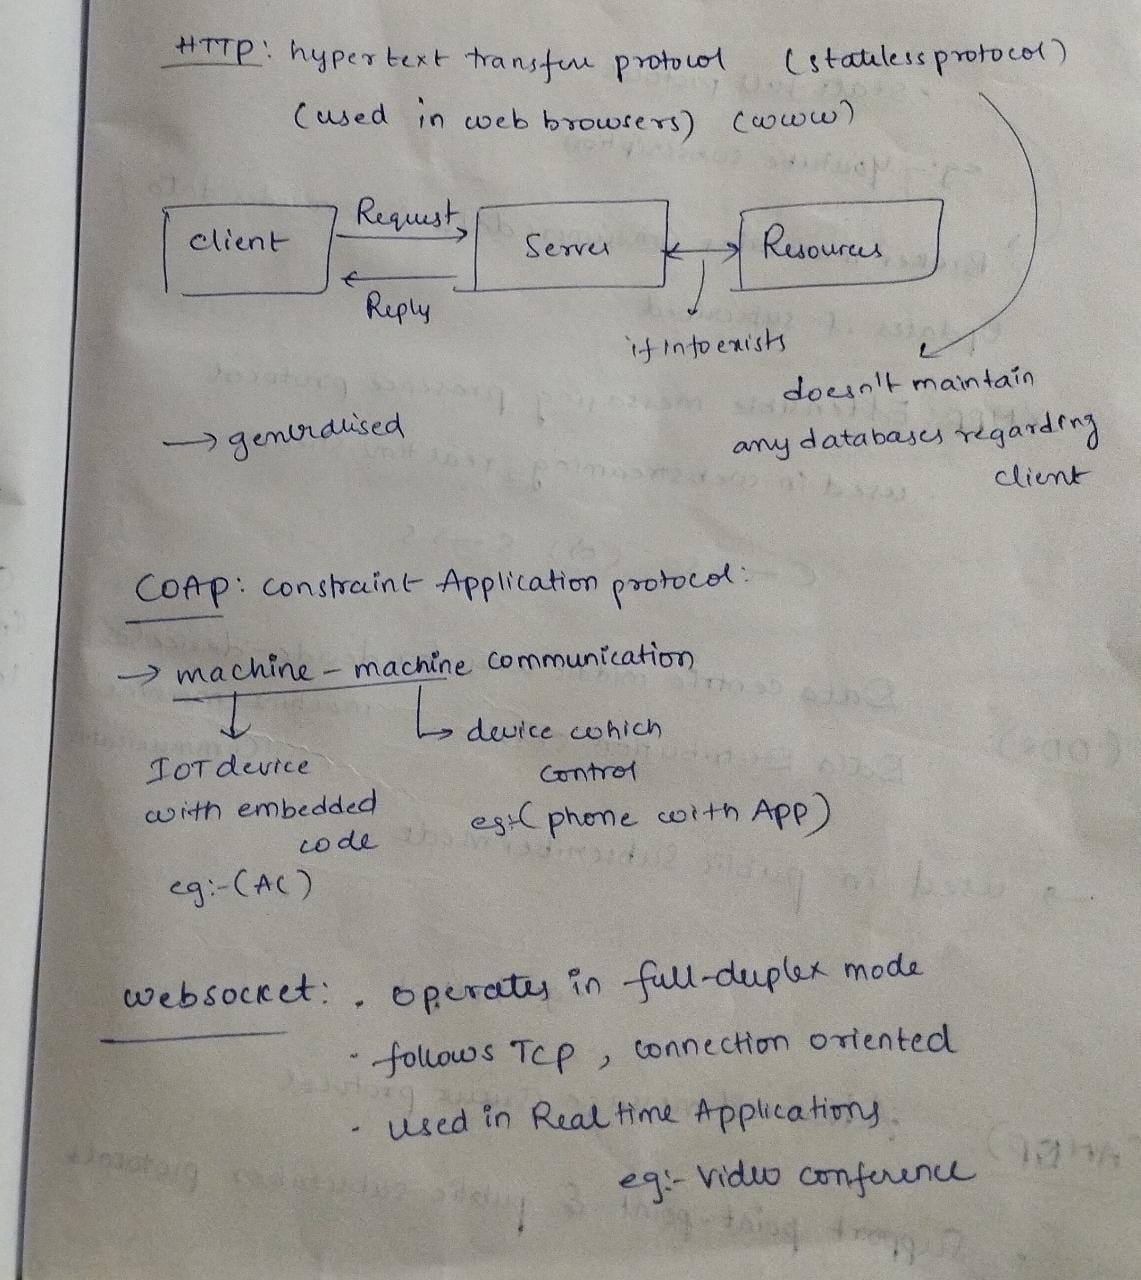 HTTP: hypertext transfer protocol (stateless protocol)
(used in web browsers) (www)
client
Request
Reply
Server
Resources
if info exists
doesn't maintain
any databases regarding
client
→ generalised
COAP: constraint Application protocol:
→ machine - machine communication
IOT device
with embedded
code
eg:- (AC)
device which
control
eg:- (phone with App)
websocket: . operates in full-duplex mode
. follows TCP, connection oriented
. used in Real time Applications
eg:- video conference